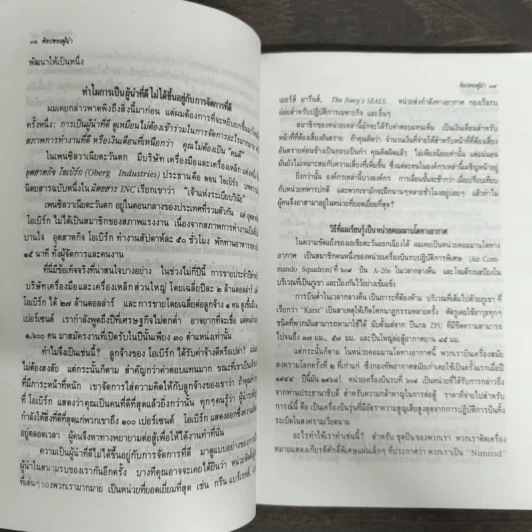 ๓๖ ศิลปของผู้นำ
พัฒนาให้เป็นหนึ่ง
ทำไมการเป็นผู้นำที่ดี ไม่ได้ขึ้นอยู่กับการจัดการที่ดี
ผมเคยกล่าวพาดพิงถึงสิ่งนี้มาก่อน แต่ผมต้องการที่จะหยิบยก
ครั้งหนึ่ง: การเป็นผู้นำที่ดี ดูเหมือนไม่ต้องเข้าร่วมในการจัดการอะไร
สภาพการทำงานที่ดี หรือเงินเดือนที่เหนือกว่า คุณไม่ต้องเป็น "คนดี"
ในเพนซิลวาเนียตะวันตก มีบริษัท เครื่องมือและเครื่องเหล็ก แห่งหนึ่ง
อุตสาหกิจ โอเบิร์ก (Oberg Industries) ประธานคือ ดอน โอเบิร์ก
นิตยสารฉบับหนึ่งใน นิตยสาร INC เรียกเขาว่า "เจ้าแห่งระเบียบวินัย"
เพนซิลวาเนียตะวันตก อยู่ในตอนกลางของประเทศที่รวมตัวกัน แต่
โอเบิร์ก ไม่ได้เป็นสมาชิกของสภาพแรงงาน เนื่องจากสภาพการทำงาน
บานใจ อุตสาหกิจ โอเบิร์ก ทำงานสัปดาห์ละ ๕๐ ชั่วโมง พักทานอาหาร
๑๕ นาที ทั้งผู้จัดการและคนงาน
ที่นี่มีข้อเท็จจริงที่น่าสนใจบางอย่าง ในช่วงไม่กี่ปีนี้ การขายประจำปี
บริษัทเครื่องมือและเครื่องเหล็ก ส่วนใหญ่ โดยเฉลี่ยปีละ ๒ ล้านดอลลาร์
โอเบิร์ก ได้ ๒๗ ล้านดอลลาร์ และการขายโดยเฉลี่ยต่อลูกจ้าง ๑ คน สูงขึ้น
เปอร์เซนต์ เรากำลังพูดถึงปีที่เศรษฐกิจไม่ตกต่ำ อาจยากที่จะเชื่อ แต่
๑,๖๐๐ คน มาสมัครงานที่เปิดรับในปีนั้นเพียง ๓๐ ตำแหน่งเท่านั้น
ทำไมจึงเป็นเช่นนี้? ลูกจ้างของ โอเบิร์ก ได้รับค่าจ้างดีหรือเปล่า?
ไม่ต้องสงสัย แต่กระนั้นก็ตาม สำคัญกว่าค่าตอบแทนมาก ขณะที่เขาเป็น
ที่มีภาระหน้าที่หนัก เขาจัดการใส่ความคิดให้กับลูกจ้างของเขาว่า ถ้าคุณ
ที่ โอเบิร์ก แสดงว่าคุณเป็นคนที่ดีที่สุดแล้วยิ่งกว่านั้น ทุกๆคนรู้ว่า
กำลังให้สิ่งที่ดีที่สุดแก่พวกเขาถึง ๑๐๐ เปอร์เซนต์ โอเบิร์ก แสดงออกซึ่งความ
อยู่ตลอดเวลา ผู้คนจึงหาทางพยายามต่อสู้เพื่อให้ได้งานทำที่นั่น
ความเป็นผู้นำที่ดีไม่ได้ขึ้นอยู่กับการจัดการที่ดี มาดูแบบอย่างของ
ผู้นำในสนามรบของเรากันอีกครั้ง บางทีคุณอาจจะเคยได้ยินว่า
ที่เด่นๆของพวกเรามากมาย เป็นหน่วยที่ยอดเยี่ยมที่สุด เช่น กรีน แบร์เรทท์,
ศิลปของผู้นำ ๓๗
เยอร์ส์ มารีนส์, The Navy's SEALS, หน่วยส่งกำลังทางอากาศ กองเรือรบ
ย่อยสำหรับปฏิบัติการเฉพาะกิจ และอื่นๆ
สมาชิกของหน่วยเหล่านี้มักจะได้รับค่าตอบแทนเพิ่ม เป็นเงินเดือนสำหรับ
หน้าที่ที่ต้องเสี่ยงอันตราย ถ้าคุณคิดว่า จำนวนเงินที่จ่ายให้สำหรับหน้าที่ที่ต้องเสี่ยง
อันตรายค่อนข้างเป็นกอบเป็นกำ คุณคิดผิดแล้ว ไม่เพียงน้อยเท่านั้น แต่แน่นอน
มันยังไม่เหมาะสมกับความเสี่ยงที่เพิ่มขึ้น ซึ่งแต่ละคนในองค์กรเหล่านี้เผชิญหน้าอยู่
ยิ่งกว่านั้น องค์กรเหล่านี้บางองค์กร การเลื่อนขั้นจะช้ากว่า เมื่อเปรียบเทียบ
กับหน่วยทหารปกติ และพวกเขามักจะฝึกนานๆหลายชั่วโมงอยู่บ่อยๆ แล้วทำไม
ผู้คนจึงอาสามาอยู่ในหน่วยที่ยอดเยี่ยมที่สุด?
วิธีที่ผมเรียนรู้เป็นหน่วยคอมมานโดทางอากาศ
ในความขัดแย้งของเอเชียตะวันออกเฉียงใต้ ผมเคยเป็นหน่วยคอมมานโดทาง
อากาศ เป็นสมาชิกคนหนึ่งของหน่วยเครื่องบินรบปฏิบัติการพิเศษ (Air Com-
mando Squadron) ที่ ๖๐๙ บิน A-26s ในเวลากลางคืน และโจมตีรถเสบียงใน
บริเวณที่เป็นภูเขา และป้องกันไว้อย่างเข้มแข็ง
การบินต่ำในเวลากลางคืน เป็นภาระที่ต้องห้าม บริเวณที่เต็มไปด้วยภูเขา ที่
เรียกว่า "Karst" เป็นสาเหตุให้เกิดโศกนาฏกรรมหลายครั้ง ศัตรูเคยใช้อาวุธทุกๆ
ชนิดที่พวกมันสามารถมาใช้ได้ นับตั้งแต่จาก ปืนกล ZPU ที่มีขีดความสามารถ
ไปจนถึง ๓๗ มม., ๕๗ มม. และปืนใหญ่ต่อสู้อากาศยาน ๘๕ มม.
แต่กระนั้นก็ตาม ในหน่วยคอมมานโดทางอากาศนี้ พวกเราบินเครื่องสมัย
สงครามโลกครั้งที่ ๒ ที่เก่าแก่ ซึ่งกองทัพอากาศสมัยเก่าเคยใช้เป็นครั้งแรกเมื่อปี
๑๙๔๔ ปีนั้นมัน ๑๙๖๘! หน่วยเครื่องบินรบที่ ๖๐๙ เป็นหน่วยที่ได้รับการกล่าวถึง
จากท่านประธานาธิบดี สำหรับความกล้าหาญในการต่อสู้ ราคาที่จ่ายไปสำหรับ
การณ์นี้ คือ เป็นเครื่องบินรุ่นที่มีอัตราความสูญเสียสูงสุดจากการปฏิบัติการบินทิ้ง
ระเบิดในสงครามเวียดนาม
อะไรทำให้เราทำเช่นนี้? สำหรับ ชุดบินของพวกเรา พวกเราติดเครื่อง
หมายแสดงเกียรติศักดิ์พิเศษแผ่นเล็กๆ ที่ประกาศว่า พวกเราเป็น "Nimrod"